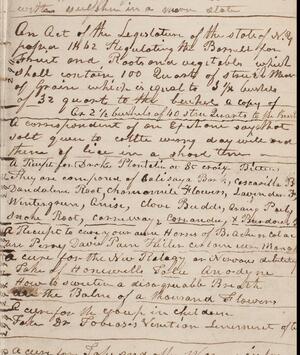 with sulphur in a warm state
An Act of the Legislature of the state of N.Y.
passed 1862 Regulating the Barrell for
fruit and Roots and vegetables which
Shall contain 100 Quarts of struck Meas
of Grain which is equal to 3 1/8 bushels
of 32 quarts to the bushel a copy of
Or 2 1/2 bushels of 40 struc Quarts to the
a correspondent of an says that
salt given to cattle wony day will end
them of lice in a short time
A Recipt for Drakes Plantation or St Croix Bitters
They are composed of Calisaya Bark, Cascarilla B
Dandelion Root, Chamomile Flowers, Lavender F
Wintergreen, Anise, Clove Budds, Orange Peels,
Snake Root, Carraway, Coriander, & Burdock
A Recipt to cure your own Horns of B
are Perry Davis Pain Killer
a cure for the New Ralagy or Nervous
Take of Hunnewells Tolu Anodyne
How to sweeten a disagreeable Breath
use the Balm of a Thousand Flowers
A cure for the Croup in children
Take Dr. Tobiases Venetian Linerment
a cure for